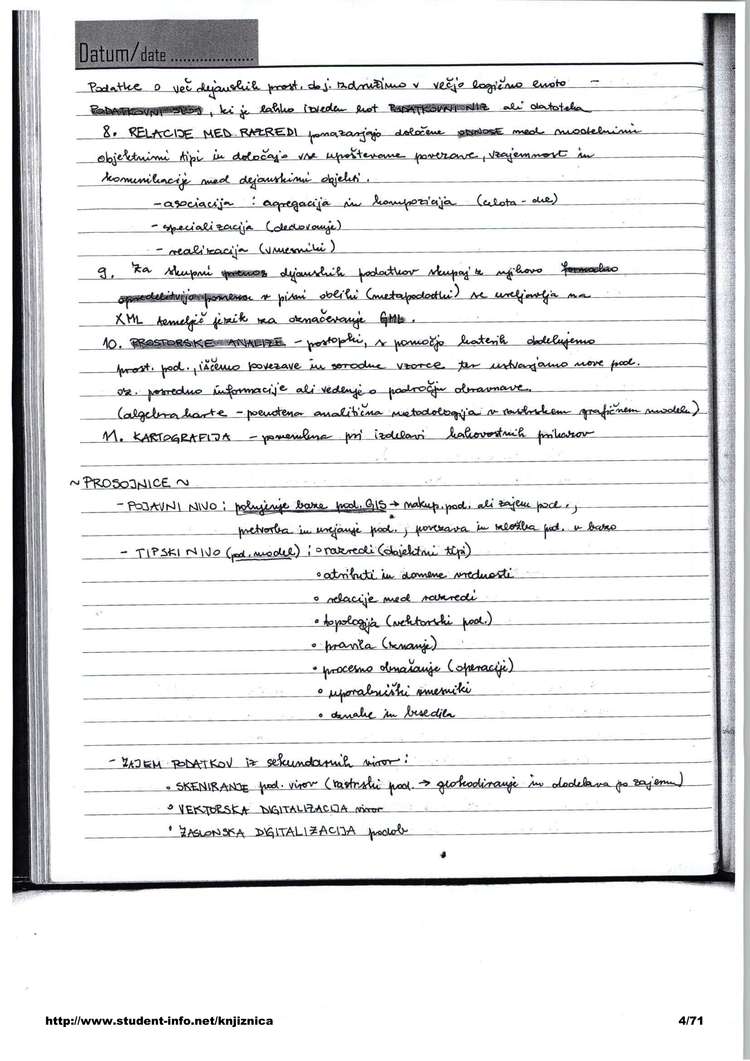 Datum/date ....................
Podatke o več dejanskih prost. obj. združimo v večjo logično enoto –
PODATKOVNI SLOJ, ki je lahko izveden kot PODATKOVNI NIZ ali datoteka
8. RELACIJE MED RAZREDI ponazarjajo določene ODNOSE med modelnimi
objektnimi tipi in določajo vse upoštevane povezave, vzajemnost in
komunikacije med dejanskimi objekti.
- asociacija : agregacija in kompozicija (celota - del)
- specializacija (dedovanje)
- realizacija (vmesniki)
9. Za skupni prenos dejanskih podatkov skupaj z njihovo formalno
opredelitvijo pomena v pisni obliki (metapodatki) se uveljavlja na
XML temelječ jezik za označevanje GML.
10. PROSTORSKE ANALIZE – postopki, s pomočjo katerih obdelujemo
prost. pod., iščemo povezave in sorodne vzorce ter ustvarjamo nove pod.
oz. posredno informacije ali vedenje o področju obravnave.
(algebra karte – analitična metodologija v rastrskem grafičnem modelu)
11. KARTOGRAFIJA – pomembna pri izdelavi kakovostnih prikazov
~ PROSOJNICE ~
- POJAVNI NIVO : polnjenje baze pod. GIS → nakup pod. ali zajem pod.,
pretvorba in urejanje pod., povezava in združba pod. v bazo
- TIPSKI NIVO (pod. model) : ∘ razredi (objektni tipi)
∘ atributi in domene vrednosti
∘ relacije med razredi
∘ topologija (vektorski pod.)
∘ pravila (znanje)
∘ procesno obnašanje (operacije)
∘ uporabniški vmesniki
∘ oznake in besedila
- ZAJEM PODATKOV iz sekundarnih virov :
∘ SKENIRANJE pod. virov (rastrski pod. → geokodiranje in obdelava po zajemu)
∘ VEKTORSKA DIGITALIZACIJA virov
∘ ZASLONSKA DIGITALIZACIJA podob
http://www.student-info.net/knjiznica
4/71